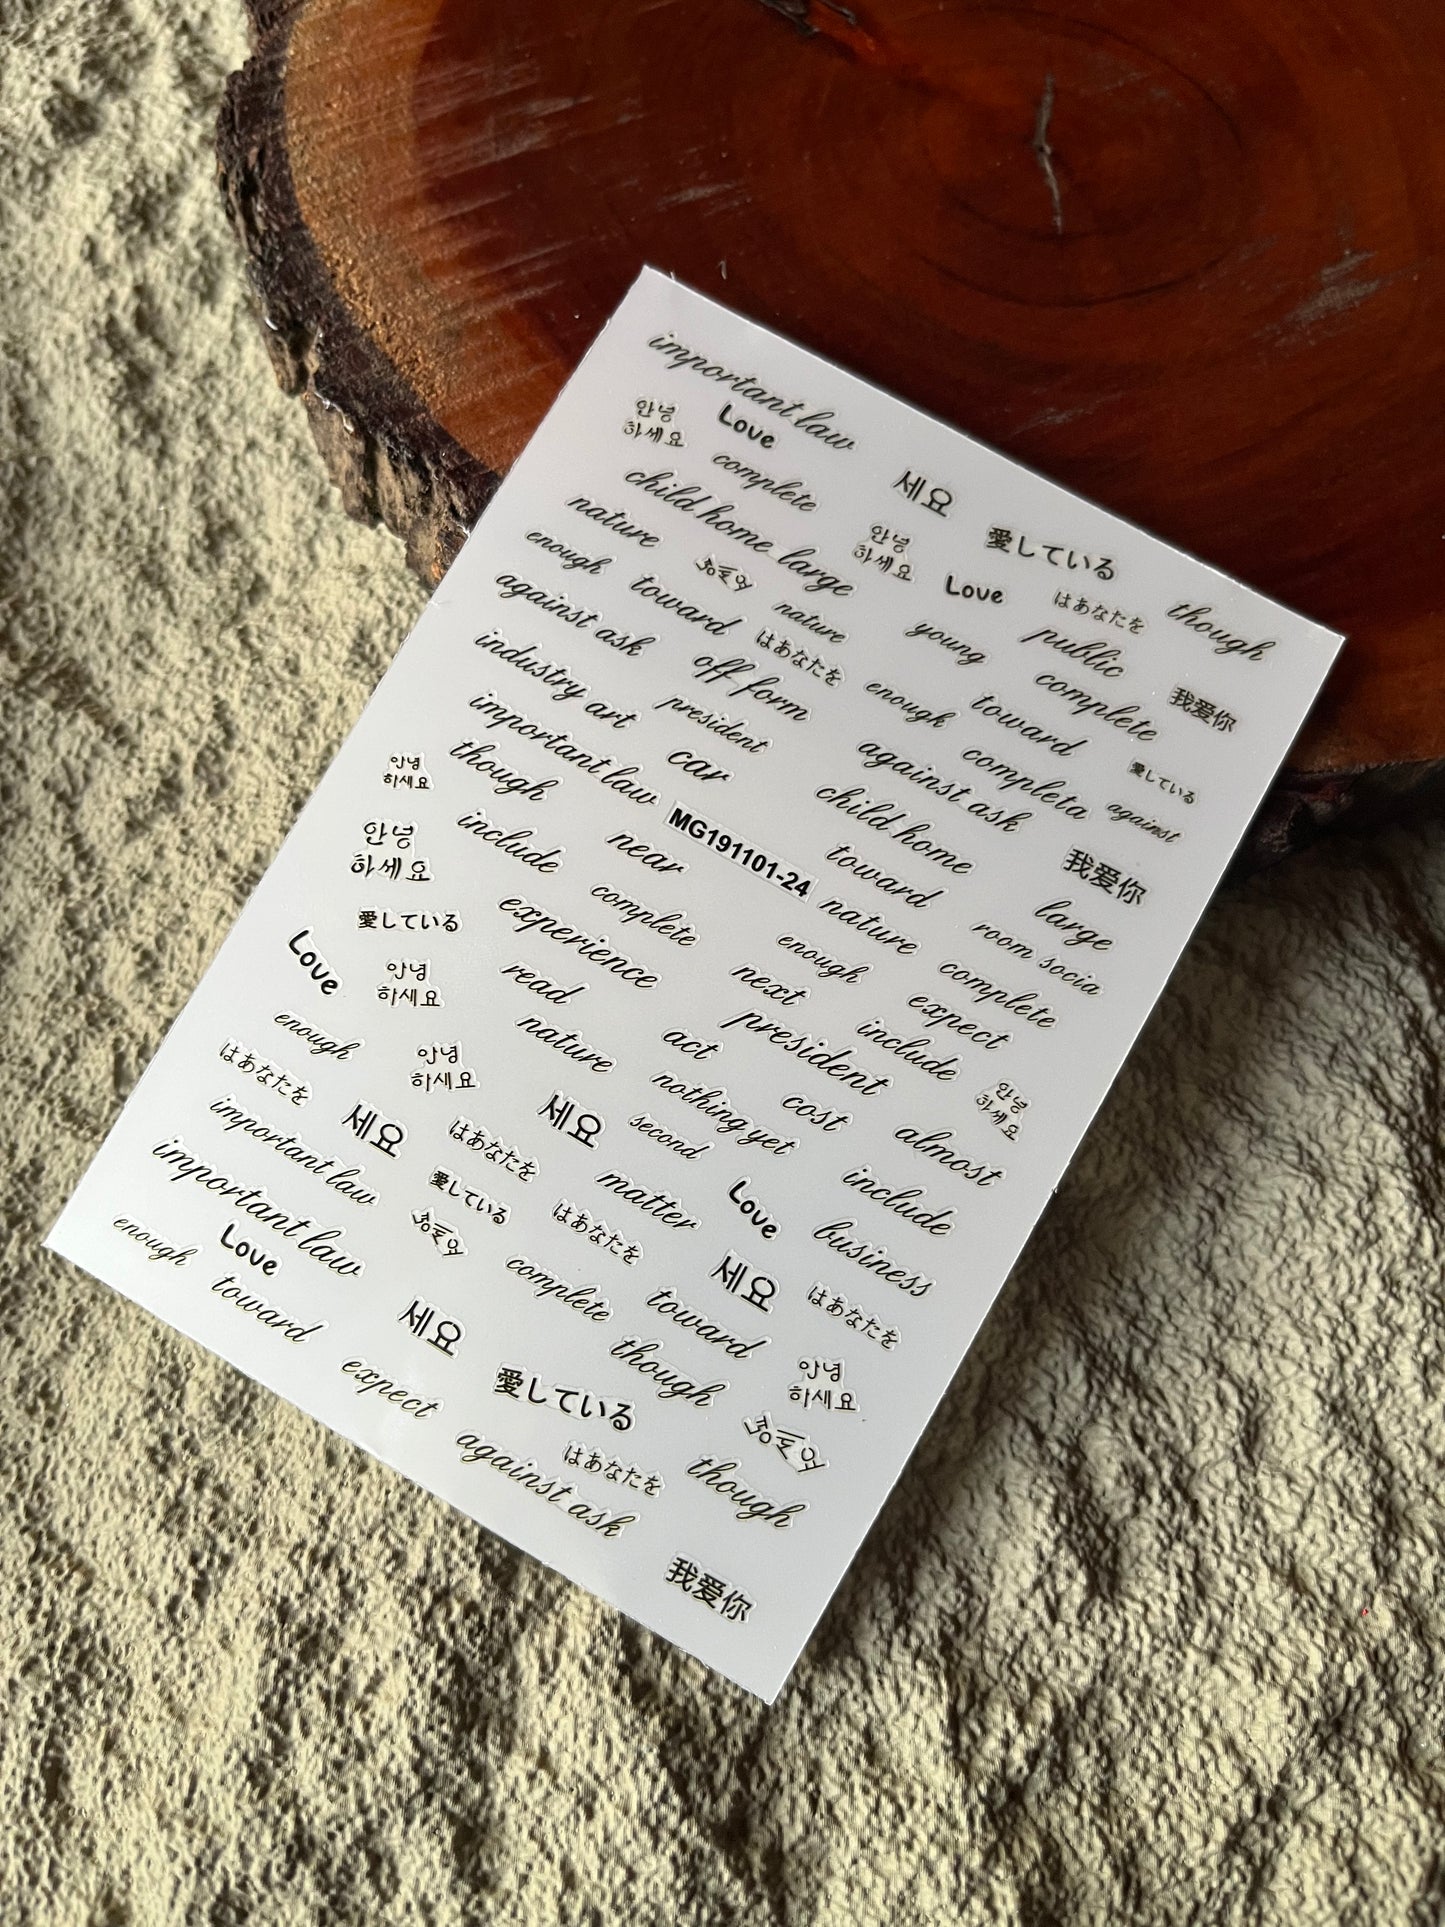 important law
안녕
하세요
Love
complete
세요
child home large
nature
안녕
하세요
愛している
enough
Love
はあなたを
though
toward
nature
against ask
はあなたを
young
public
off form
enough
toward
complete
我爱你
industry art
president
important law
car
against ask
completa
愛している
against
though
안녕
하세요
child home
include
near
MG191101-24
toward
我爱你
안녕
하세요
complete
nature
large
room socia
experience
enough
complete
愛している
Love
안녕
하세요
read
next
expect
president
include
enough
nature
act
안녕
하세요
はあなたを
안녕
하세요
nothing yet
cost
almost
important law
세요
세요
second
はあなたを
include
important law
愛している
matter
Love
business
はあなたを
enough
Love
complete
세요
はあなたを
toward
toward
세요
though
안녕
하세요
expect
愛している
against ask
はあなたを
though
我爱你